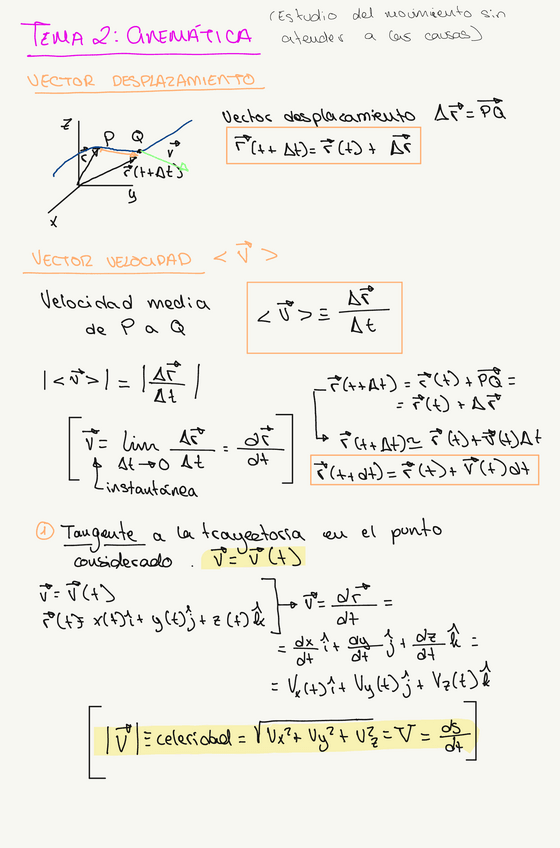 TEMA 2: CINEMÁTICA (Estudio del movimiento sin
atender a las causas)
VECTOR DESPLAZAMIENTO
Vector desplazamiento Δr⃗ = P⃗Q
r⃗(t+Δt) = r⃗(t) + Δr⃗
z P Q
r⃗ v⃗
r⃗(t+Δt)
y
x
VECTOR VELOCIDAD < v⃗ >
Velocidad media
de P a Q
< v⃗ > ≡ Δr⃗/Δt
|< v⃗ >| = |Δr⃗/Δt|
r⃗(t+Δt) = r⃗(t) + P⃗Q =
= r⃗(t) + Δr⃗
v⃗ = lim Δt→0 Δr⃗/Δt = dr⃗/dt
instantánea
r⃗(t+Δt) ≃ r⃗(t) + v⃗(t)Δt
r⃗(t+dt) = r⃗(t) + v⃗(t)dt
① Tangente a la trayectoria en el punto
considerado. v⃗ = v⃗(t)
v⃗ = v⃗(t)
r⃗(t) = x(t)î + y(t)ĵ + z(t)k̂
v⃗ = dr⃗/dt =
= dx/dt î + dy/dt ĵ + dz/dt k̂ =
= Vx(t)î + Vy(t)ĵ + Vz(t)k̂
|v⃗| ≡ celeridad = √(Vx² + Vy² + Vz²) = V = ds/dt